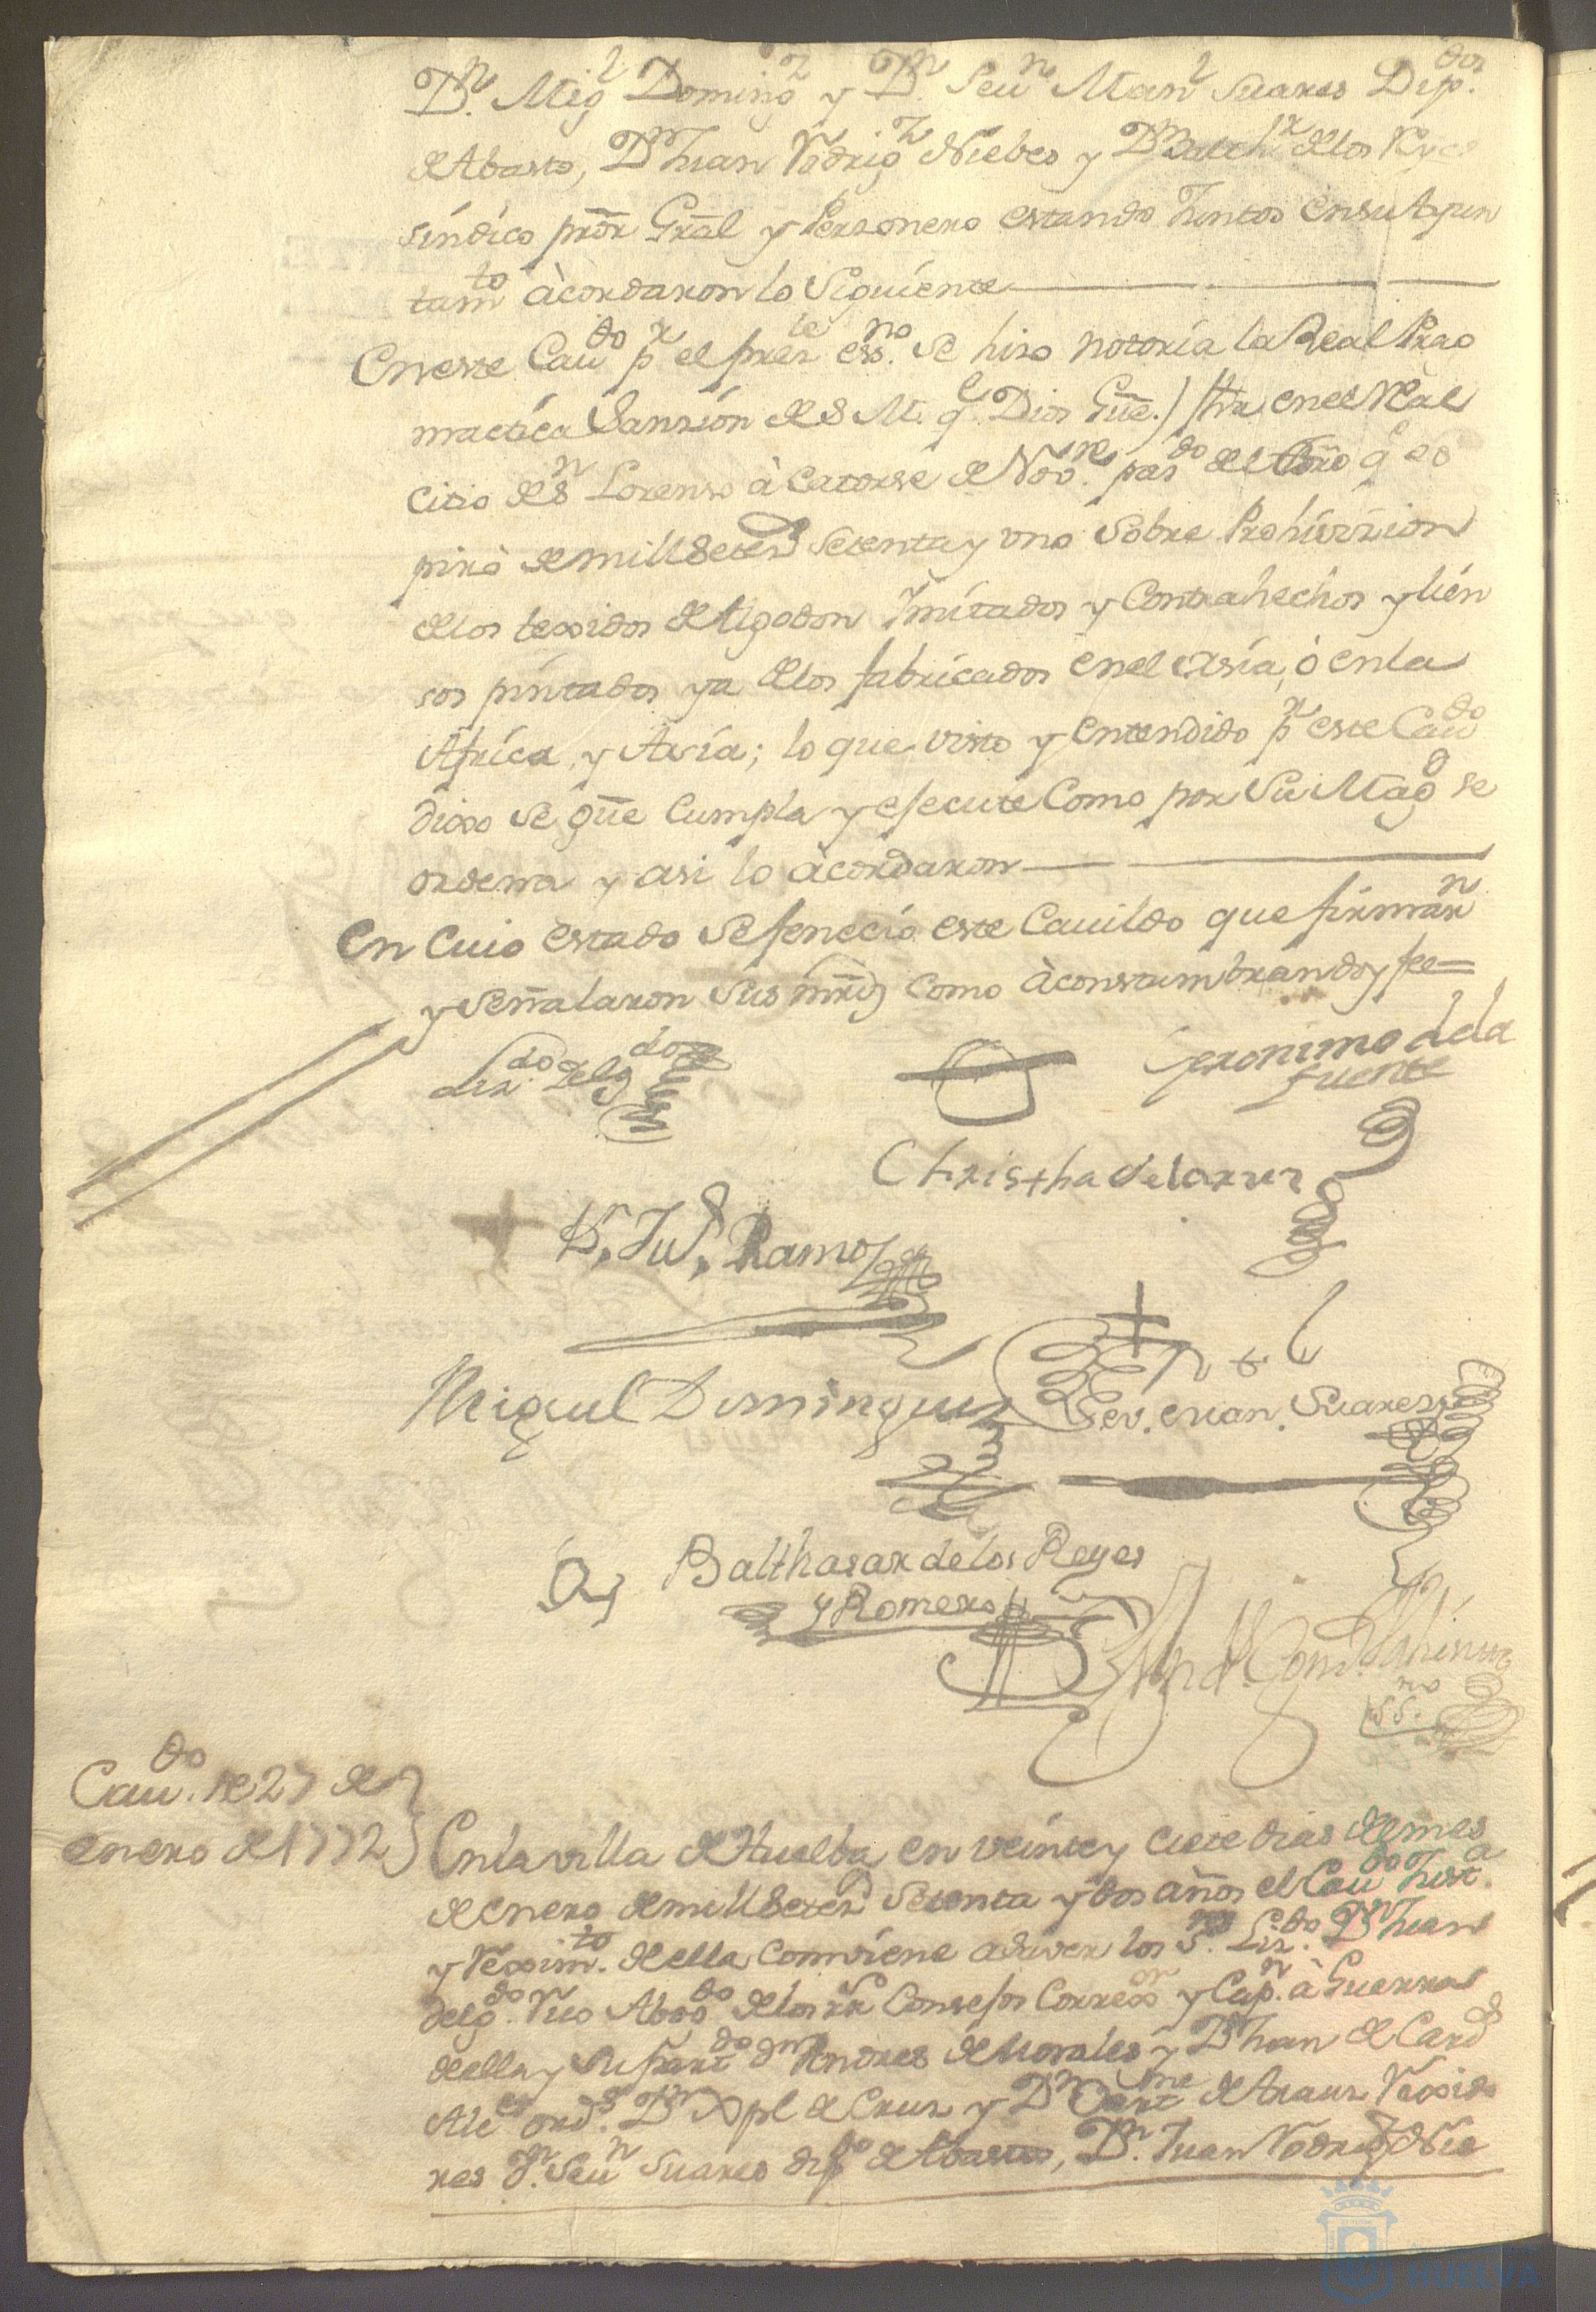 Dn. Migl Domingz y Dn. Seun Manl Suares Dip.dos
de Abasto, Dn Juan Rodrigz Niebes y Dn Balthr de los Reyes
síndico prõr Grãl y Personero estando Juntos en su Ayun
tamto àcordaron lo Siguiente
En este Caudo pr el preste esso.no Se hiso notoria la Real Prag
mactica Sanzión de S M. qe Dios Gũe.) fha en el Real
Citio de Sn Lorenso à Catorse de Nov.re pasdo del año qe es
piró de mill Seten Setenta y uno Sobre Prohivizion
de los texidos de Algodon Imitados y Contrahechos y lien
sos pintados ya de los fabricados en el Asia, ò en la
Africa, y Asia; lo que visto y entendido pr este Caudo
dixo Se gũe Cumpla y efecute Como por Su Magd se
ordena y asi lo àcordaron
En Cuio estado Se fenecío este Cauildo que firmarn
y Señalaron Sus mrds Como àconstumbran doy fee=
Lizdo. Delgdo
Geronimo dela
fuente
Christha delacruz
D. Jul. Ramos
Miguel Dominguez
Sev. Man. Suares
Balthasar de los Reyes
y Romero
ss.no
Caudo. de 27 de
enero de 1772
En la villa de Huelba en veinte y Ciete dias de mes
de enero de mill Seten Setenta y dos años el Caudo Justa.
y Rexim.to de ella Combiene a Saver los Sres. Liz.do Dn Juan
delgdo. Rio Abogdo de los rrs Consejos Corredor y Cap.n à Guerra
de ella y Su partdo dn Andres de Morales y Dn Juan de Card
Alces ordos. Dn Xpl de Crus y Dn Bartme de Araus Rexido
res Dn. Seun Suares dipdo de Abastos, Dn. Juan Rodrigz Nie
HUELVA